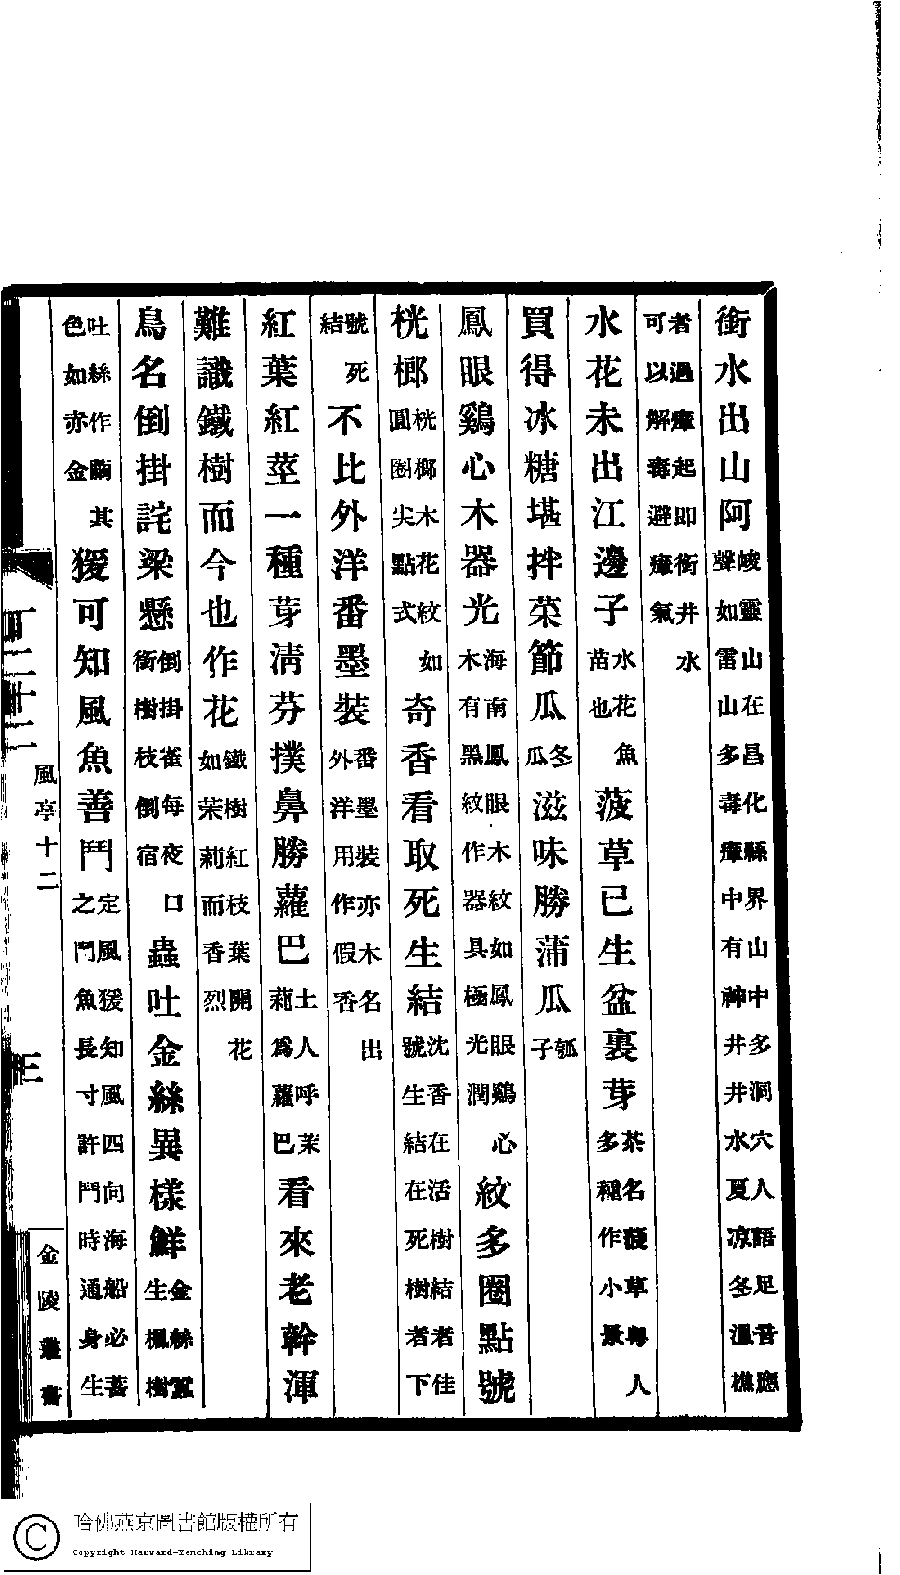 衘水出山阿峻靈山在昌化縣界山中多洞穴人語足音應聲如雷山多毒瘴中有神井井水夏凉冬溫樵
者過瘴起即衘井水可以解毒避瘴氣
水花未出江邊子水花魚苗也菠草已生盆裏芽茶名菠草粤人多種作小景
買得冰糖堪拌菜節瓜冬瓜滋味勝蒲瓜瓠子
鳳眼鷄心木器光海南鳳眼木紋如鳳眼鷄心木有黑紋作器具極光潤紋多圈點號
桄榔桄榔木花紋如圓圈尖點式奇香看取死生結沈香在活樹結者佳號生結在死樹者下
號死結不比外洋番墨裝番墨裝亦木名出外洋用作假香
紅葉紅莖一種芽清芬撲鼻勝蘿巴土人呼茉莉為蘿巴看來老幹渾
難識鐵樹而今也作花鐵樹紅枝葉開花如茉莉而香烈
鳥名倒掛詫梁懸倒掛雀每夜口衘樹枝倒宿蟲吐金絲異樣鮮金絲蠶生楓樹
吐絲作繭其色如亦金猨可知風魚善鬥定風猨知風四向海船必蓄之鬥魚長寸許鬥時通身生
風亭十二
金陵叢書
哈佛燕京圖書館版權所有
Copyright Harvard-Yenching Library